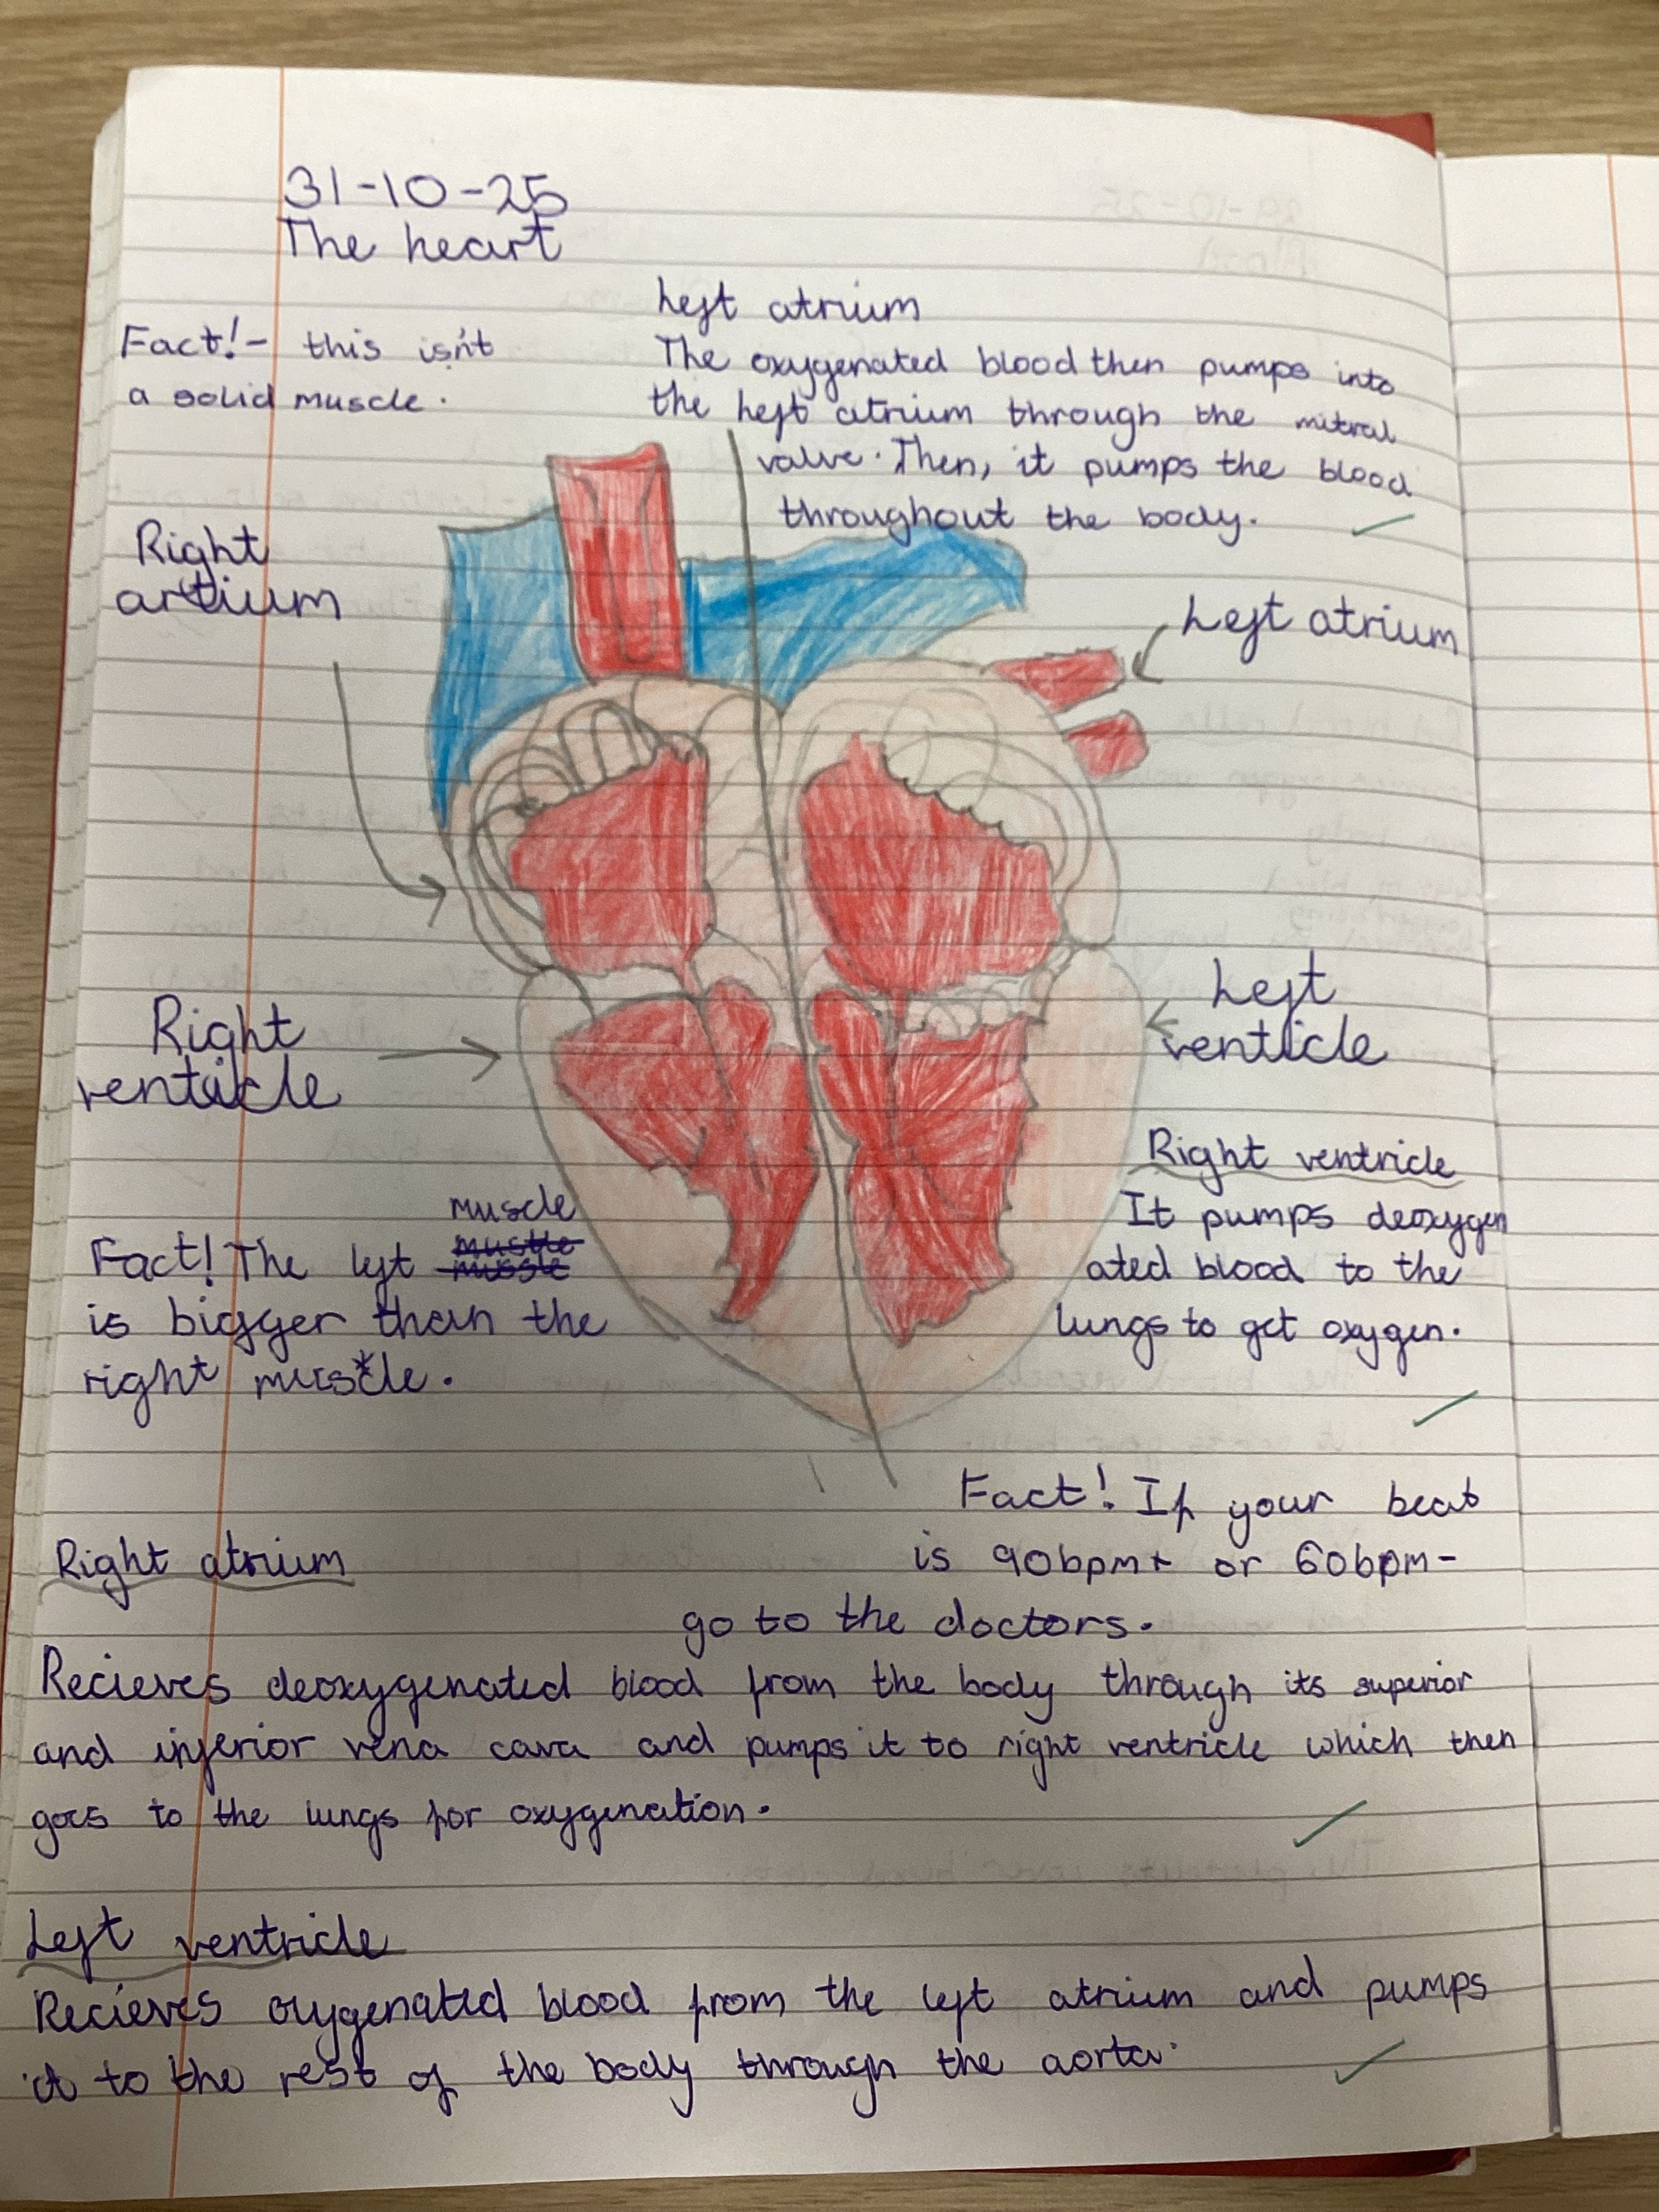 31-10-25
The heart
Fact!- this isn't
a solid muscle.
Left atrium
The oxygenated blood then pumps into
the left atrium through the mitral
valve. Then, it pumps the blood
throughout the body.
Right
artium
Left atrium
Right
venticle
Left
venticle
Right ventricle
It pumps deoxygen
ated blood to the
lungs to get oxygen.
muscle
Fact! The left
is bigger than the
right muscle.
Fact! If your beat
is 90bpm+ or 60bpm-
go to the doctors.
Right atrium
Recieves deoxygenated blood from the body through its superior
and inferior vena cava and pumps it to right ventricle which then
goes to the lungs for oxygenation.
Left ventricle
Recieves oxygenated blood from the left atrium and pumps
it to the rest of the body through the aorta.